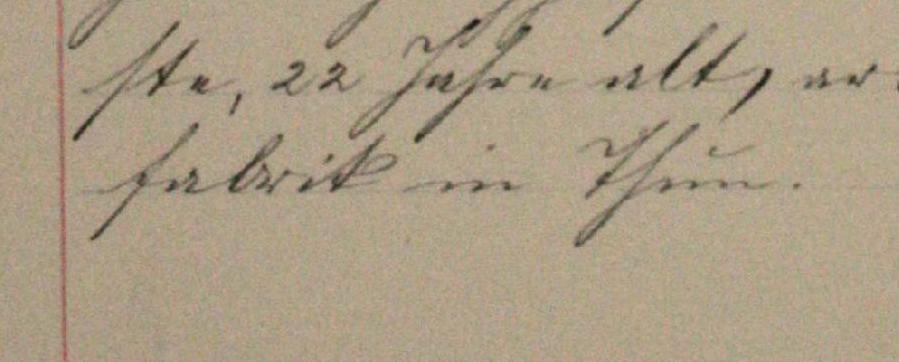 ste, 22 Jahre alt, ar
fabrik in Thun.